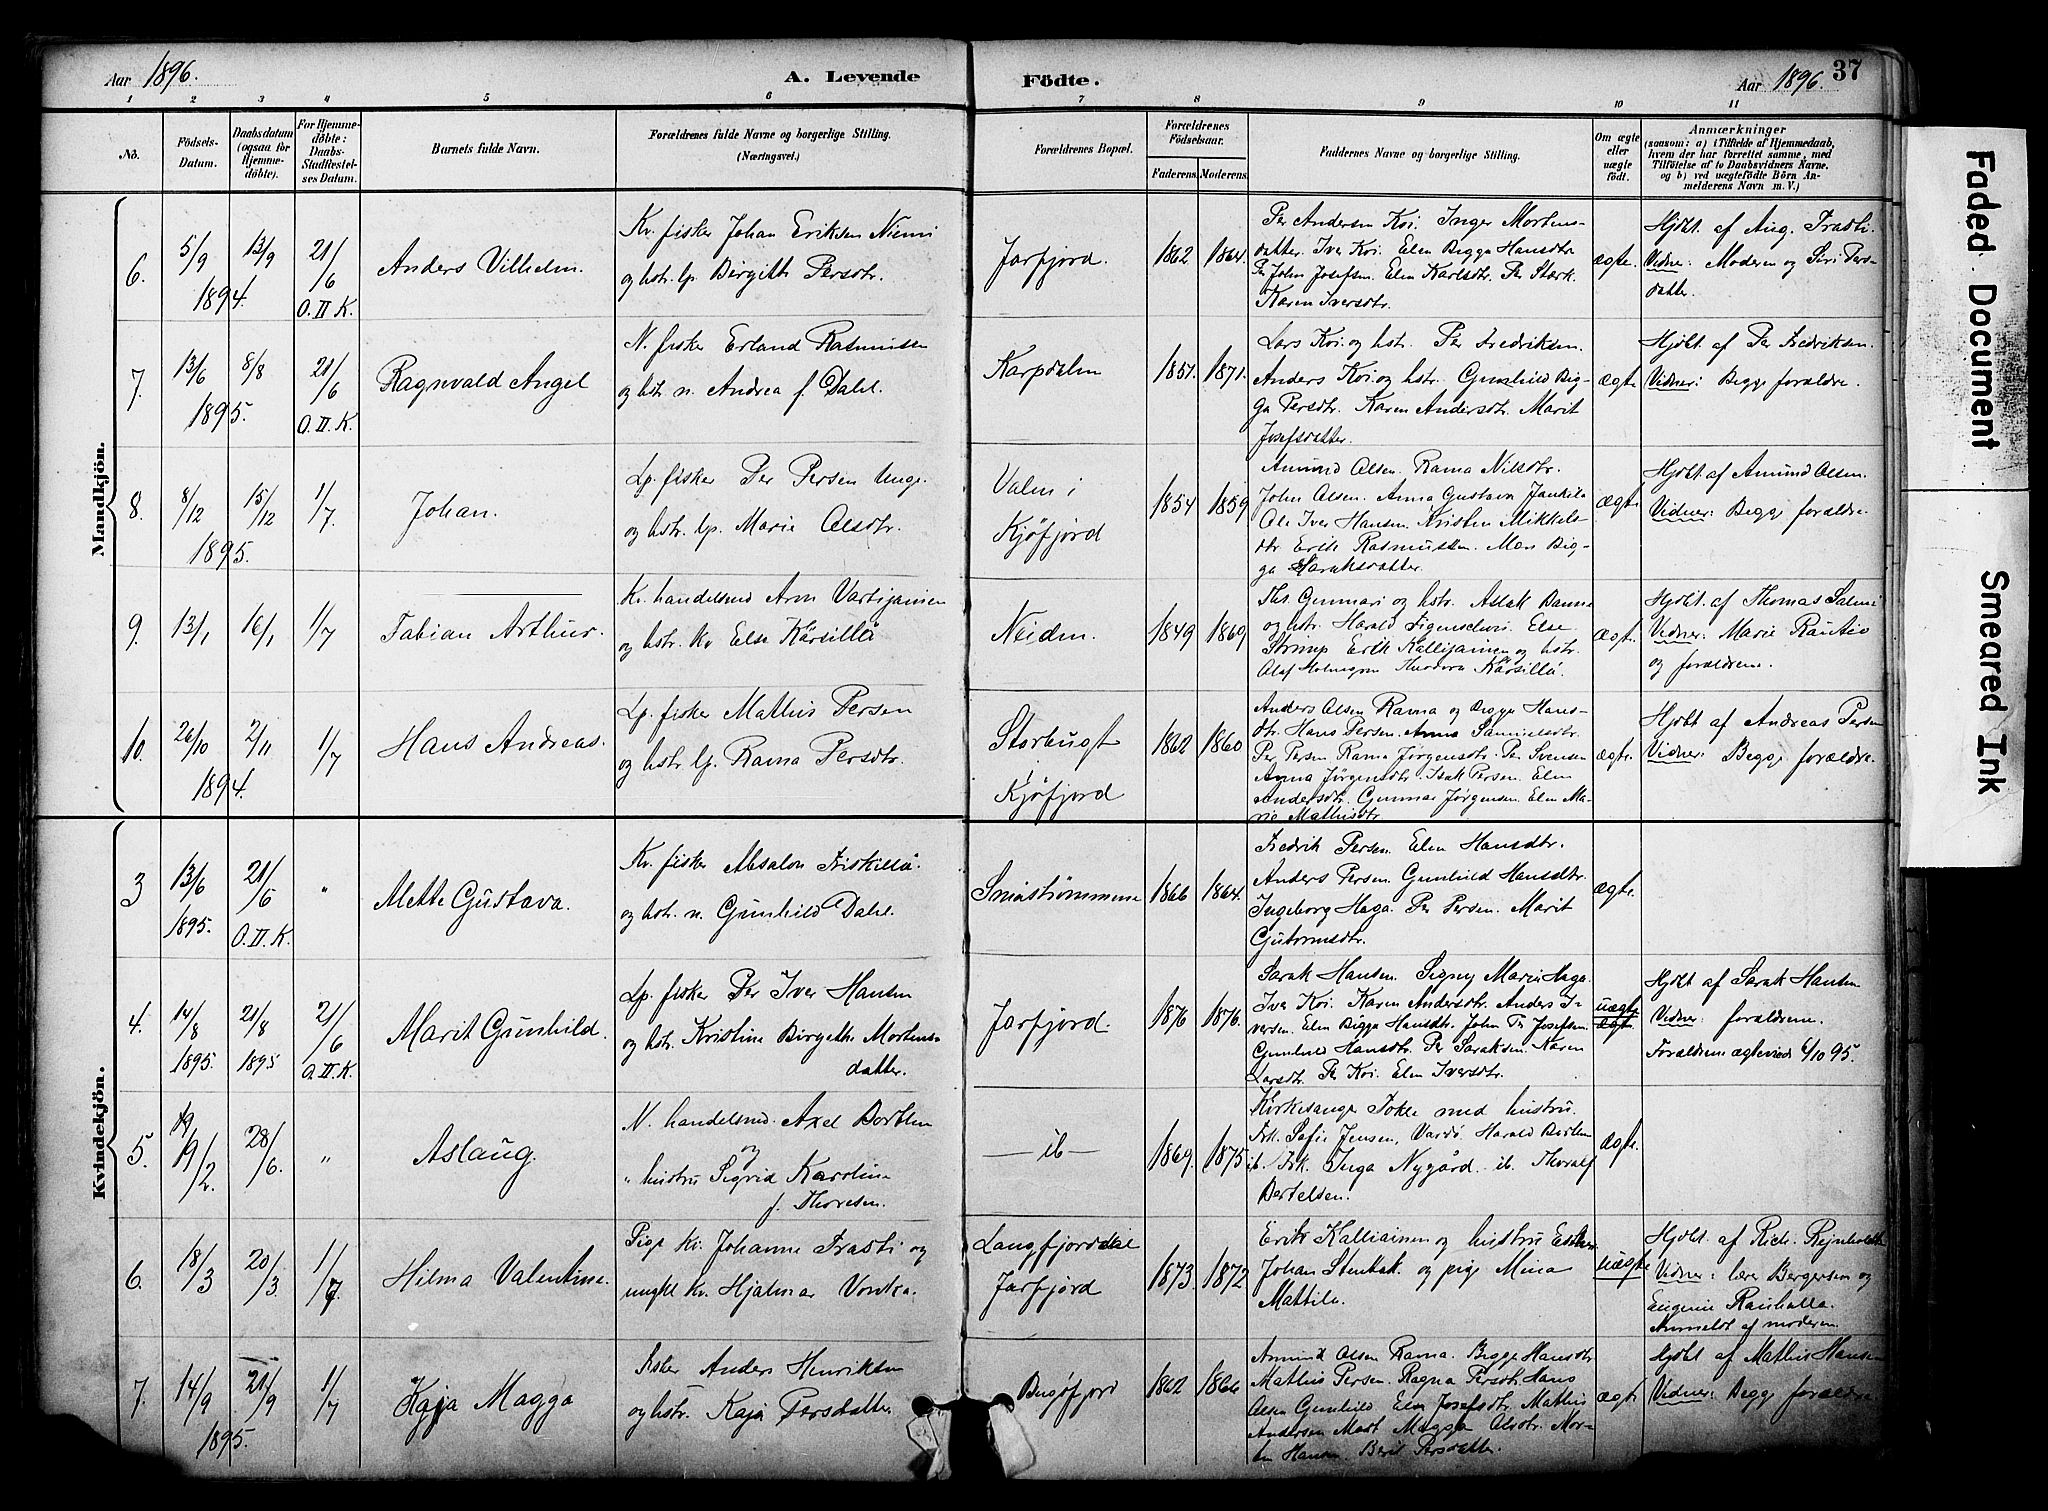 Aar 1896.
A. Levende Födte.
Aar 1896.
37
1 2 3 4 5 6 7 8 9 10 11
No.
Födsels-
Datum.
Daabsdatum
(ogsaa for
Hjemme-
döbte).
For Hjemme-
döbte:
Daabs-
Stadfæstel-
ses Datum.
Barnets fulde Navn.
Forældrenes fulde Navne og borgerlige Stilling.
(Næringsvei.)
Forældrenes Bopæl.
Forældrenes
Födselsaar.
Faderens.
Moderens.
Faddernes Navne og borgerlige Stilling.
Om ægte
eller
uægte
födt.
Anmærkninger
(saasom: a) i Tilfælde af Hjemmedaab,
hvem der har forrettet samme, med
Tilföielse af to Daabsvidners Navne,
og b) ved uægtefödte Börn An-
melderens Navn m. V.)
Mandkjön.
6.
5/9
1894.
13/9
21/6
O. II K.
Anders Vilhelm.
Kv. fisker Johan Eriksen Niemi
og hstr. lp. Birgitte Persdtr.
Jarfjord.
1862
1864.
Per Andersen Koi. Inger Mortens-
datter. Iver Koi. Elen Bigga Hansdtr
Per John Josefsen. Elen Karlsdtr. Per Stærk.
Karen Iversdtr.
ægte.
Hjdbt. af Aug. Frasti.
Vidner: Moderen og Siri Pers-
datter.
7.
13/6
1895.
8/8
21/6
O. II. K.
Ragnvald Angel
N. fisker Erland Rasmussen
og hstr. n. Andrea f. Dahl.
Karpdalen
1851.
1871.
Lars Koi og hstr. Per Fredriksen.
Anders Koi og hstr. Gunhild Big-
ga Persdtr. Karen Andersdtr. Marit
Josefsdatter.
ægte.
Hjdbt. af Per Fredriksen.
Vidner: Begge forældre.
8.
8/12
1895.
15/12
1/7.
Johan.
Lp. fisker Per Persen Unge.
og hstr. lp. Marie Olsdtr.
Valen i
Kjøfjord
1854
1859
Amund Olsen. Rama Nilsdtr.
John Olsen. Anna Gustava Jankila
Ole Iver Hansen. Kristen Mikkels-
dtr Erik Rasmussen. Mari Big-
ga Saraksdatter.
ægte.
Hjdbt af Amund Olsen.
Vidner: Begge forældre.
9.
13/1
16/1
1/7
Fabian Arthur.
Kv. handelsmd Aron Vartijainen
og hstr. kv Else Kärsillä
Neiden.
1849
1860
Ths. Gunnari og hstr. Aslak Banne
og hstr. Harald Figenschou. Else
Strimp Erik Kallijainen og hstr.
Olaf Holmgren Theodora Kärsillä.
ægte.
Hjdbt. af Thomas Salmi
Vidner: Marie Rautio
og forældrene.
10.
26/10
1894.
2/11
1/7
Hans Andreas.
Lp. fisker Mathis Persen
og hstr. lp. Rama Persdtr.
Storbugt
i
Kjøfjord
1862
1860
Anders Olsen Rama og Bigga Hans-
dtr. Hans Persen. Anna Samuelsdtr.
Per Persen Rama Jørgensdtr. Per Svensen
Anna Jørgensdtr. Isak Persen. Elen
Andersdtr. Gunnar Jørgensen. Elen Ma-
rie Mathisdtr.
ægte.
Hjdbt af Andreas Persen
Vidner: Begge forældre.
Kvindekjön.
3
13/6
1895.
21/6
O. II. K.
"
Mette Gustava.
Kv. fisker Absalon Friskillä.
og hstr. n. Gunhild Dahl.
Smaastrømmene
1866
1864.
Fredrik Persen. Elen Hansdtr.
Anders Persen. Gunhild Hansdtr.
Ingeborg Haga. Per Persen. Marit
Gutormsdtr.
ægte.
4.
14/8
1895.
21/8
1895
21/6
O. II. K.
Marit Gunhild.
Lp. fisker Per Iver Hansen
og hstr. Kristine Birgitte Mortens-
datter.
Jarfjord.
1876
1876.
Sarak Hansen. Signy Marie Haga
Iver Koi. Karen Andersdtr. Anders I-
versen. Elen Bigga Hansdtr. John Per Josefsen.
Gunhild Hansdtr. Per Saraksen. Karen
Larsdtr. Per Koi. Elen Iversdtr.
uægte
ægte.
Hjdbt af Sarak Hansen
Vidner: forældrene.
Forældrene ægteviede 6/10 95.
5.
19/2
28/6.
"
Aslaug.
N. handelsmd. Axel Borthen
og
" hustru Sigrid Karoline
f. Thoresen.
— ib —
1869.
1875
Kirkesanger Tokle med hustru.
Frk. Sofie Jensen, Vardø. Harald Borthen
ib. Frk. Inga Nygård. ib. Thoralf
Bertelsen.
ægte.
6.
18/3
20/3.
1/7.
Hilma Valentine.
Pige kv. Johanne Frasti og
ungkl kv. Hjalmar Vonka.
Langfjorddal
Jarfjord
1873.
1872
Erik Kalliainen og hustru Esther.
Johan Stenbak og pige Mina
Mattila.
uægte
Hjdbt. af Rich. Rejnholdt
Vidner: lærer Bergersen og
Eugenie Rauhalla.
Anmeldt af moderen.
7.
14/9
1895.
21/9
1/7
Kaja Magga
fisker Anders Henriksen
og hstr. Kaja Persdatter.
Bugøfjord
1862
1866
Amund Olsen Rama. Bigga Hansdtr
Mathis Persen. Ragna Persdtr. Hans
Olsen Gunhild. Elen Josefsdtr. Mathis
Andersen Mart Magga Olsdtr. Mor-
ten Hansen. Berit Persdatter.
ægte
Hjdbt af Mathis Hansen
Vidner: Begge forældre.
Faded Document
Smeared Ink